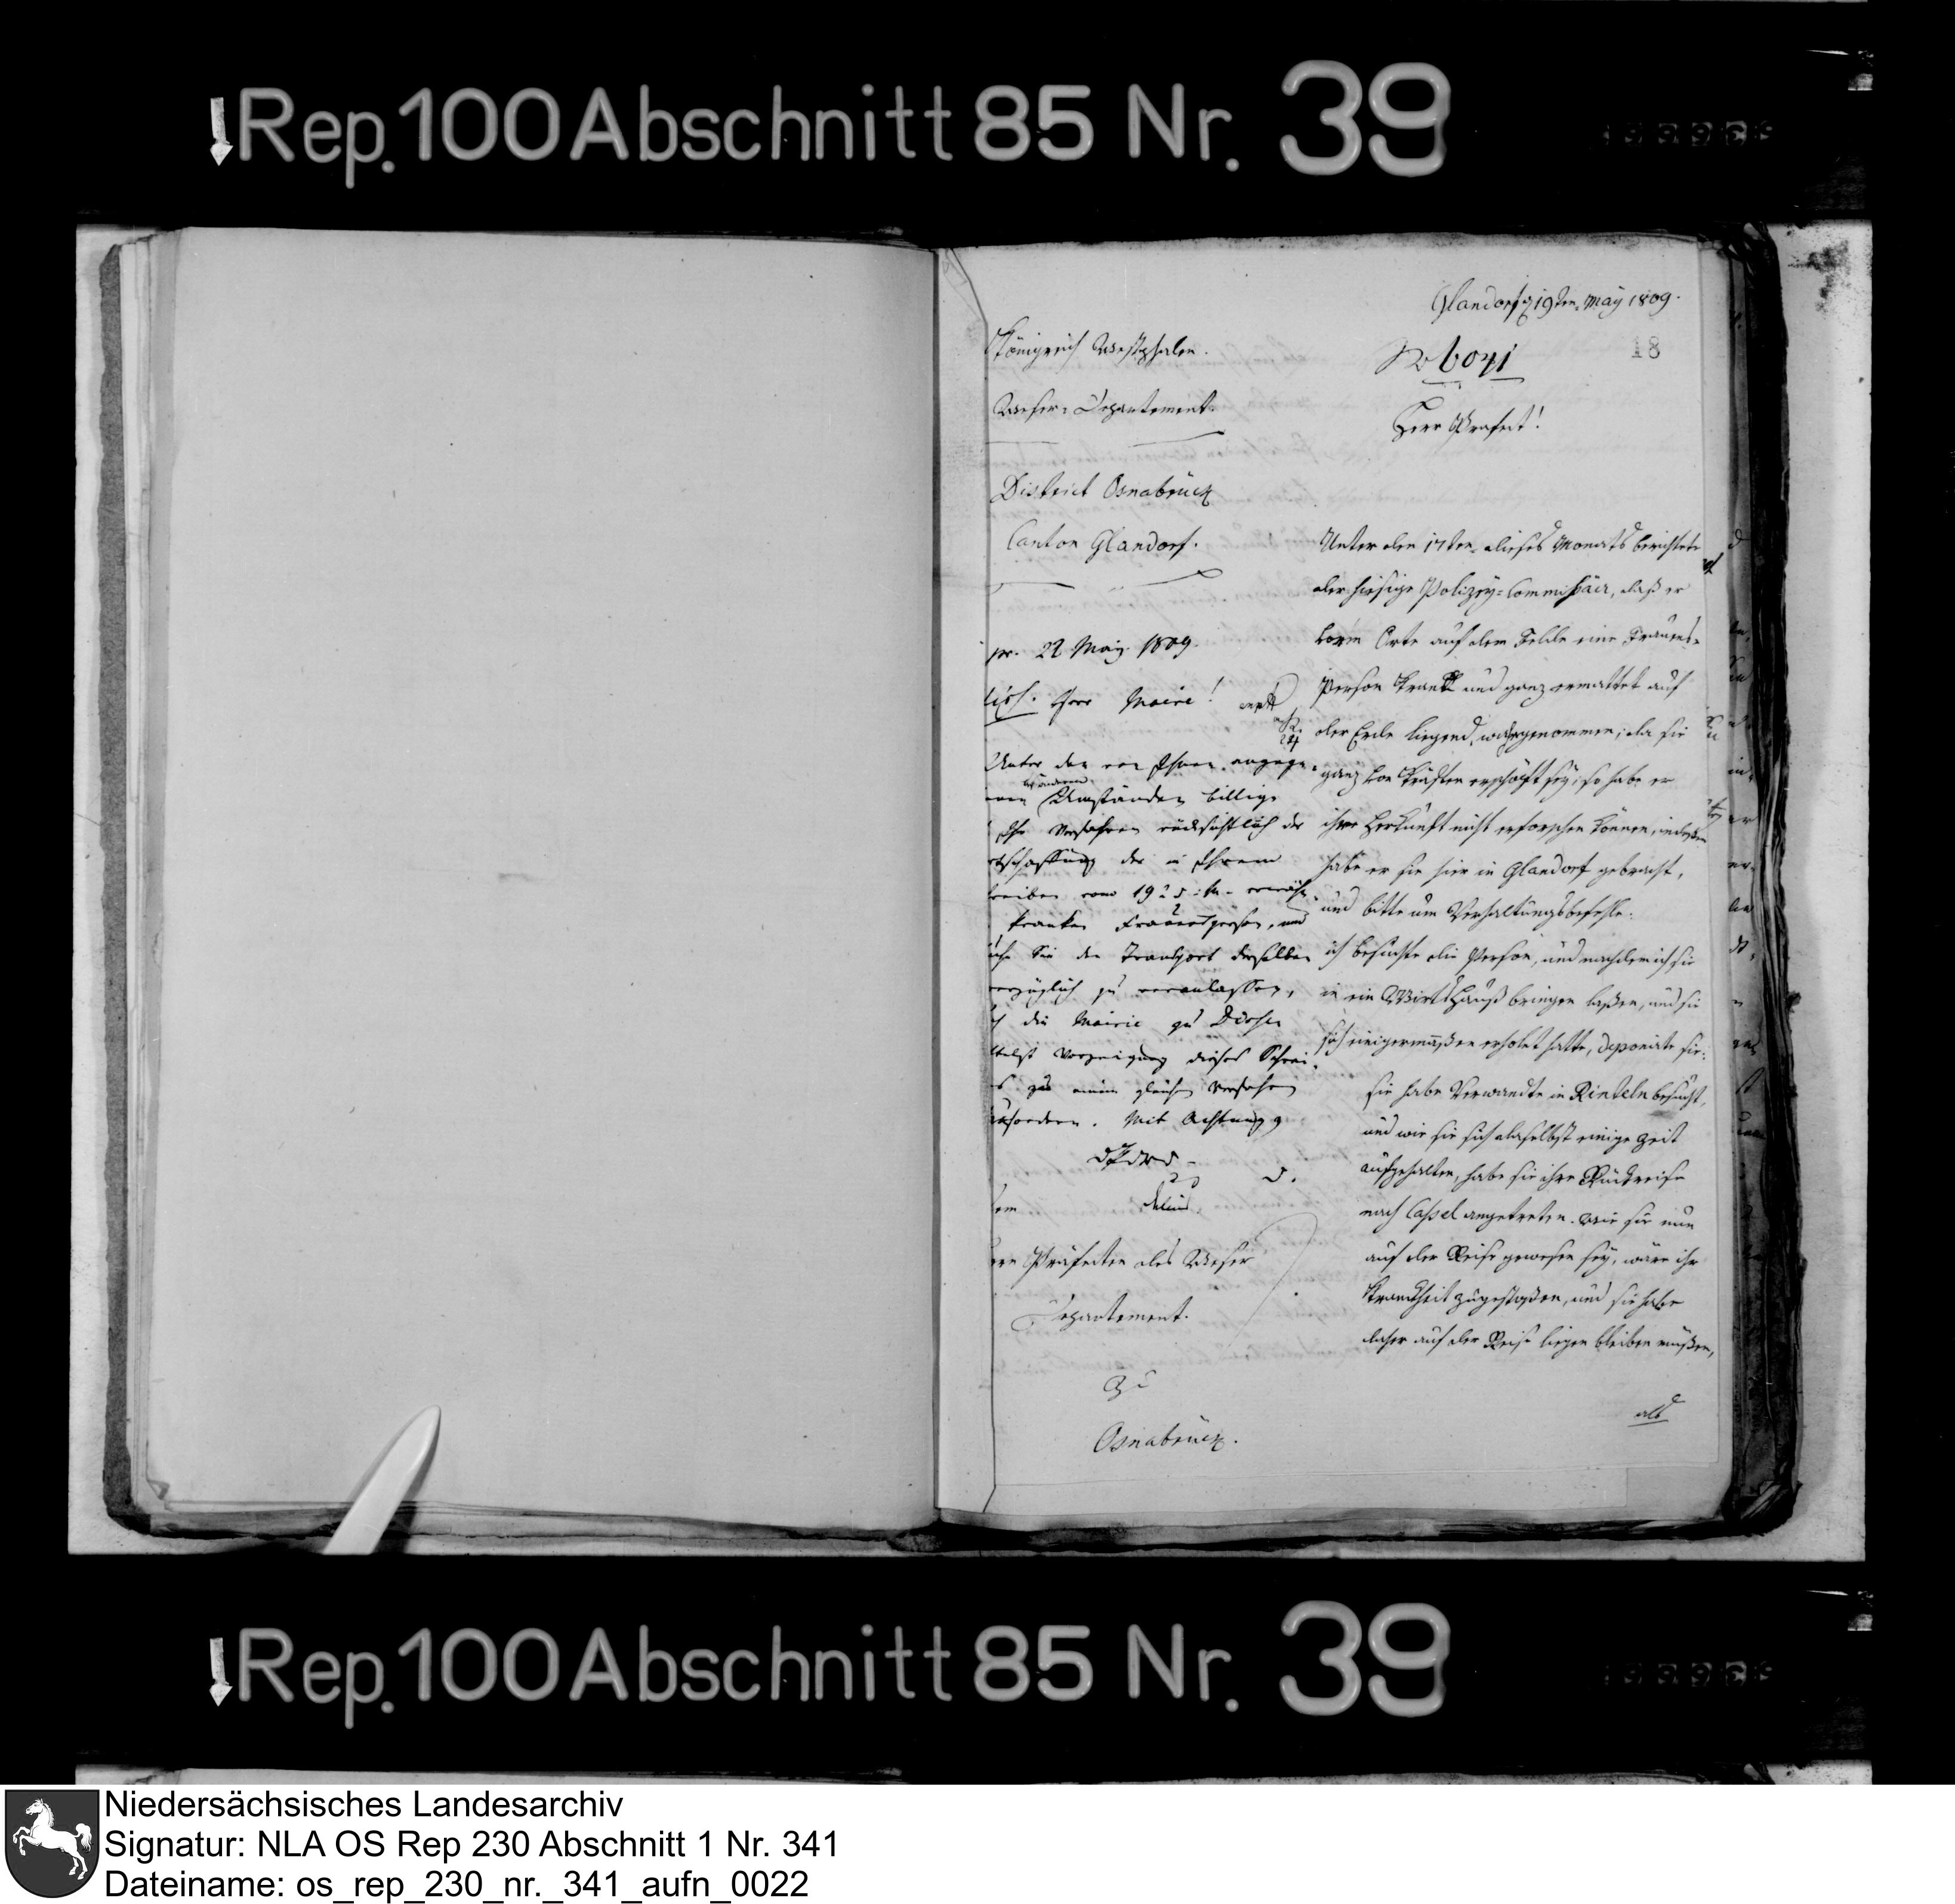 Rep. 100 Abschnitt 85 Nr. 39
Glandorf 19ten May 1809.
18
Königreich Westphalen.
Weser-Departement
Herr Präfect!
District Osnabrück
Canton Glandorf.
Unter den 17ten dieses Monats berichtete
der hiesige Polizey-Commissair, daß er
vorm Orte auf dem Felde eine Frauens-
Person krank und ganz ermattet auf
der Erde liegend, wahrgenommen; da sie
ganz von Kräften erschöpft sey; so habe er
ihre Herkunft nicht erforschen können, indeßen
habe er sie hier in Glandorf gebracht,
und bitte um Verhaltungsbefehle.
ich besuchte die Person, und nachdem ich sie
in ein Wirtshauß bringen laßen, und sie
sich einigermaßen erholet hatte, deponirte sie:
sie habe Verwandte in Rinteln besucht,
und wie sie sich daselbst einige Zeit
aufgehalten, habe sie ihre Rückreise
nach Cassel angetreten. Wie sie nun
auf der Reise gewesen sey, wäre ihr
Krankheit zugestoßen, und sie habe
daher auf der Reise liegen bleiben müßen,
als
pr. 22 May 1809.
Herr Maire!
Unter den von Ihnen angege-
Umständen billige
Ihr Verfahren rücksichtlich der
schaffung der in Ihrem
reiben vom 19 d. M. erwähn
kranken Frauensperson, und
Sie den Transport derselben
züglich zu veranlassen,
die Mairie zu Dissen
telst Vorzeigung dieses Schrei-
zu einem gleichen Verfahren
fordern. Mit Achtung
Präfecten des Weser
Departement.
Zu
Osnabrück.
Rep. 100 Abschnitt 85 Nr. 39
Niedersächsisches Landesarchiv
Signatur: NLA OS Rep 230 Abschnitt 1 Nr. 341
Dateiname: os_rep_230_nr._341_aufn_0022